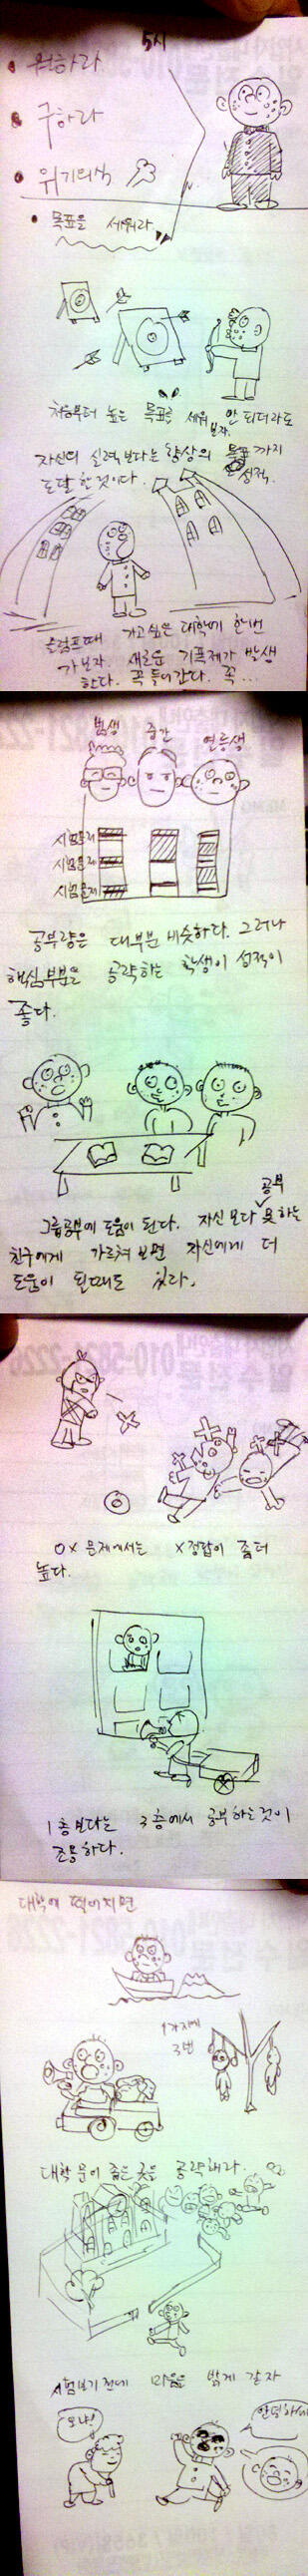 5시
• 원하라
• 구하라
• 위기의식
• 목표를 세워라
처음부터 높은 목표를 세워 안 되더라도
보자.
자신의 실력보다는 향상의 목표까지
성적.
도달 한 것이다.
슬럼프때 가고싶은 대학에 한번
가보자. 새로운 기폭제가 발생
한다. 꼭 들어간다. 꼭...
범생 중간 열등생
시험문제
시험문제
시험문제
공부량은 대부분 비슷하다. 그러나
핵심부분을 공략하는 학생이 성적이
좋다.
공부
그룹공부에 도움이 된다. 자신보다 못하는
친구에게 가르쳐 보면 자신에게 더
도움이 될때도 있다.
OX 문제에서는 X정답이 좀더
높다.
1층 보다는 3층에서 공부하는것이
조용하다.
대학에 떨어지면
1가지에
3번
대학 문이 좁은 곳을 공략해라.
시험보기 전에 마음을 밝게 갖자
오냐!
안녕하세